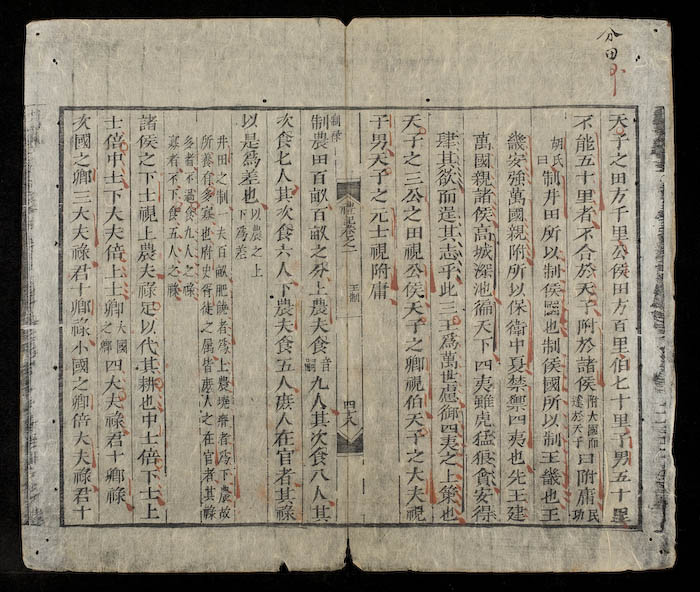 分田
天子之田方千里公侯田方百里伯七十里子男五十里
不能五十里者不合於天子附於諸侯附大國而達於天子曰附庸民功
胡氏曰制井田所以制侯國也制侯國所以制王畿也王
畿安強萬國親附所以保衛中夏禁禦四夷也先王建
萬國親諸侯高城深池徧天下四夷雖虎猛狼貪安得
肆其欲而逞其志乎此三王為萬世慮御四夷之上策也
天子之三公之田視公侯天子之卿視伯天子之大夫視
子男天子之元士視附庸
禮卷之 王制 四十八
制祿
制農田百畝百畝之分上農夫食音嗣九人其次食八人其
次食七人其次食六人下農夫食五人庶人在官者其祿
以是為差也以農之上下為差
井田之制一夫百畝肥饒者為上農墝瘠者為下農故
所養有多寡也府史胥徒之屬皆庶人之在官者其祿
多者不過食九人之祿
寡者不下食五人之祿
諸侯之下士視上農夫祿足以代其耕也中士倍下士上
士倍中士下大夫倍上士卿大國之卿四大夫祿君十卿祿
次國之卿三大夫祿君十卿祿小國之卿倍大夫祿君十